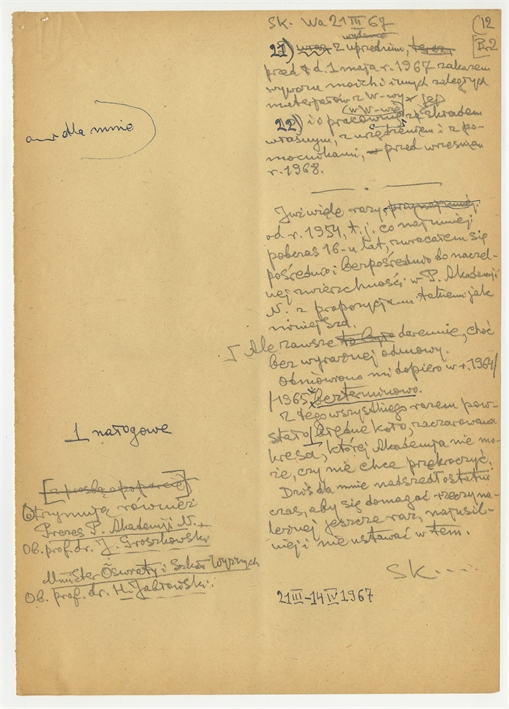 SK. Wa 21 III 67
12
wydane
21) wraz z uprzednim,
przed d. 1 maja r. 1967 zakazem
wywozu moich i innych zaległych
materjałów z W-wy
(w W-wie)
22) i o pracownię ze składem
własnym, z urządzeniem i z po-
mocnikami, przed wrześniem
r. 1968.
a-w dla mnie
Już wiele razy, przynajmniej
od r. 1951, t. j. co najmniej
podczas 16-u lat, zwracałem się
pośrednio i bezpośrednio do naczel-
nej zwierzchności w P. Akademji
N. z propozycjami takiemi jak
niniejsze.
Ale zawsze daremnie, choć
bez wyraźnej odmowy.
Odmówiono mi dopiero w r. 1964/
/1965 bezterminowo.
Z tego wszystkiego razem pow-
stało błędne koło, zaczarowana
kresa, której Akademja nie mo-
że, czy nie chce przekroczyć.
Dziś dla mnie nadszedł ostatni
czas, aby się domagać rzeczy na-
leżnej jeszcze raz, najusil-
niej i nie ustawać w tem.
SK....
21 III–14 IV 1967
1 nałogowe
[a poślę a poparcie]
Otrzymują również
Prezes P. Akademji N.
Ob. prof. dr. J. Groszkowski
Minister Oświaty i Szkół Wyższych
Ob. prof. dr. H. Jabłoński.